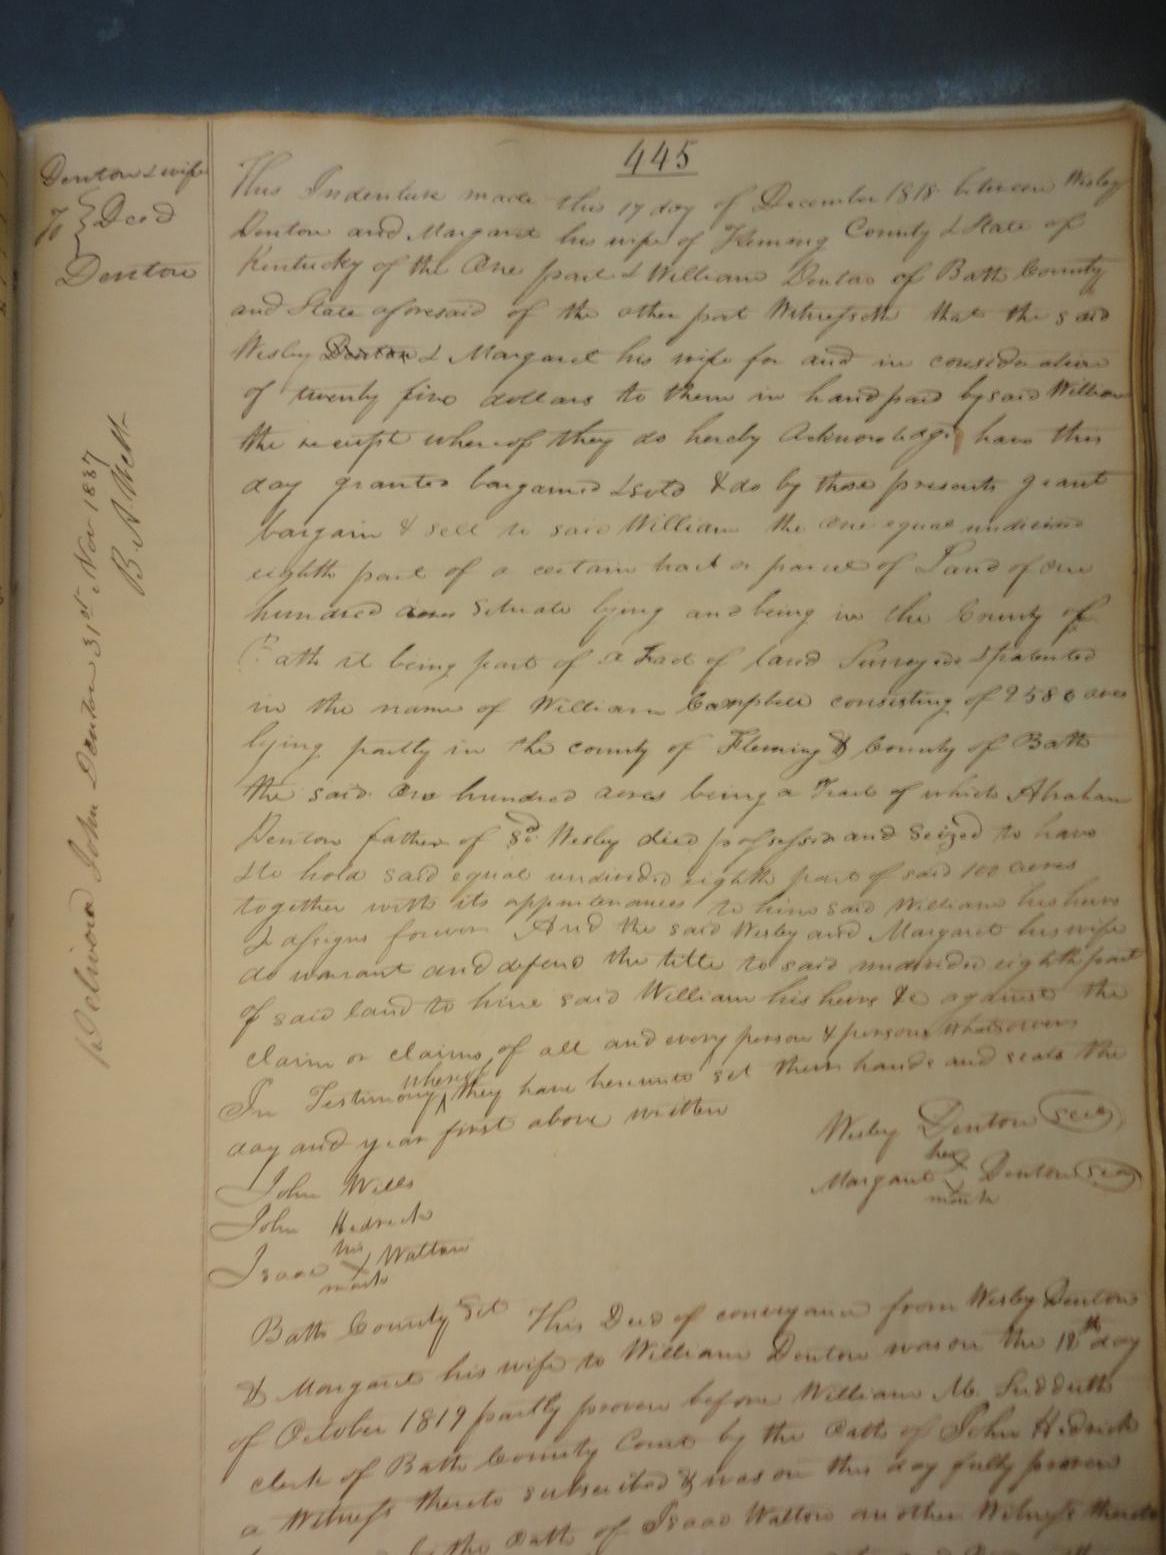 445
Denton & wife
To } Deed
Denton
This Indenture made this 17 day of December 1818 between Wesley
Denton and Margaret his wife of Fleming County & State of
Kentucky of the One part & William Denton of Bath County
and State aforesaid of the other part Witnesseth that the said
Wesley Denton & Margaret his wife for and in consideration
of twenty five dollars to them in hand paid by said William
the receipt whereof they do hereby Acknowledge have this
day granted bargained & sold & do by these presents grant
bargain & sell to said William the One equal undivided
eighth part of a certain tract or parcel of Land of one
hundred acres Situate lying and being in the County of
Bath it being part of a Tract of land Surveyed & patented
in the name of William Campbell consisting of 2580 acres
lying partly in the county of Fleming & County of Bath
the said One hundred acres being a Tract of which Abraham
Denton father of Sd. Wesley died possessed and Seized to have
& to hold said equal undivided eighth part of said 100 acres
together with its appurtenances to him said William his heirs
& assigns forever And the said Wesley and Margaret his wife
do warrant and defend the title to said undivided eighth part
of said land to him said William his heirs &c against the
claim or claims of all and every person & persons whatsoever
In Testimony whereof they have hereunto set their hands and seals the
day and year first above written
Wesley Denton (seal)
Margaret her X mark Denton (seal)
John Wills
John Hedrick
Isaac his X mark Walton
Bath County Sct This Deed of conveyance from Wesley Denton
& Margaret his wife to William Denton was on the 18th day
of October 1819 partly proven before William M. Sudduth
clerk of Bath County Court by the Oath of John Hedrick
a Witness thereto subscribed & was on this day fully proven
by the Oath of Isaac Walton another Witness thereto
John Denton 31st Nov 1837